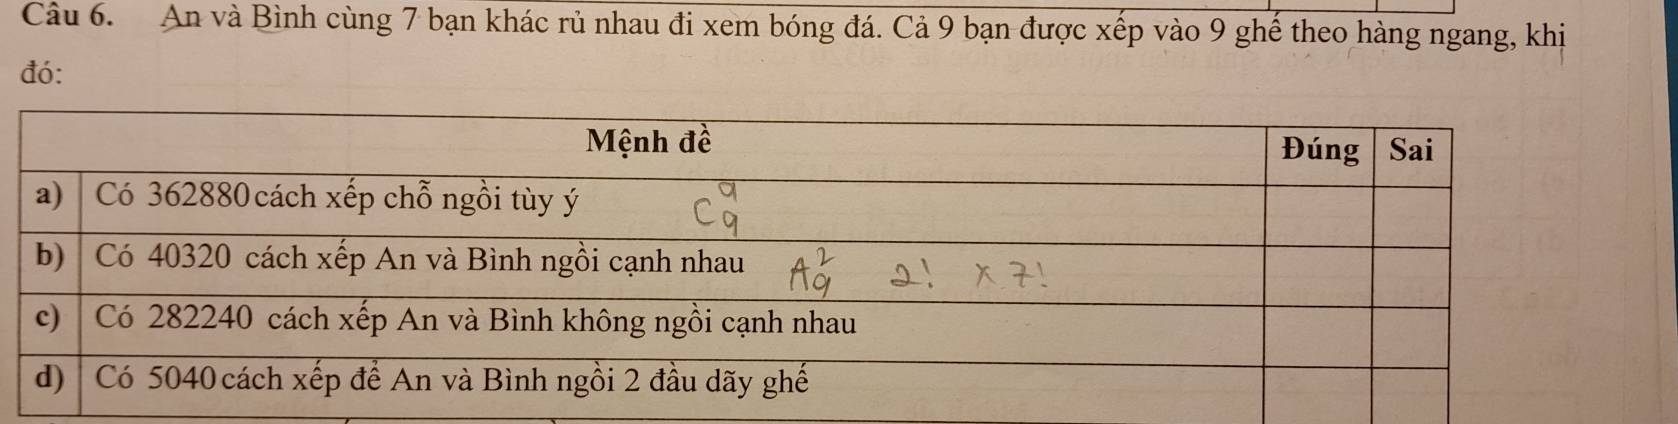 Câu 6. An và Bình cùng 7 bạn khác rủ nhau đi xem bóng đá. Cả 9 bạn được xếp vào 9 ghế theo hàng ngang, khi
đó:
Mệnh đề Đúng Sai
a) Có 362880 cách xếp chỗ ngồi tùy ý C₉⁹
b) Có 40320 cách xếp An và Bình ngồi cạnh nhau A₉² 2! × 7!
c) Có 282240 cách xếp An và Bình không ngồi cạnh nhau
d) Có 5040 cách xếp để An và Bình ngồi 2 đầu dãy ghế